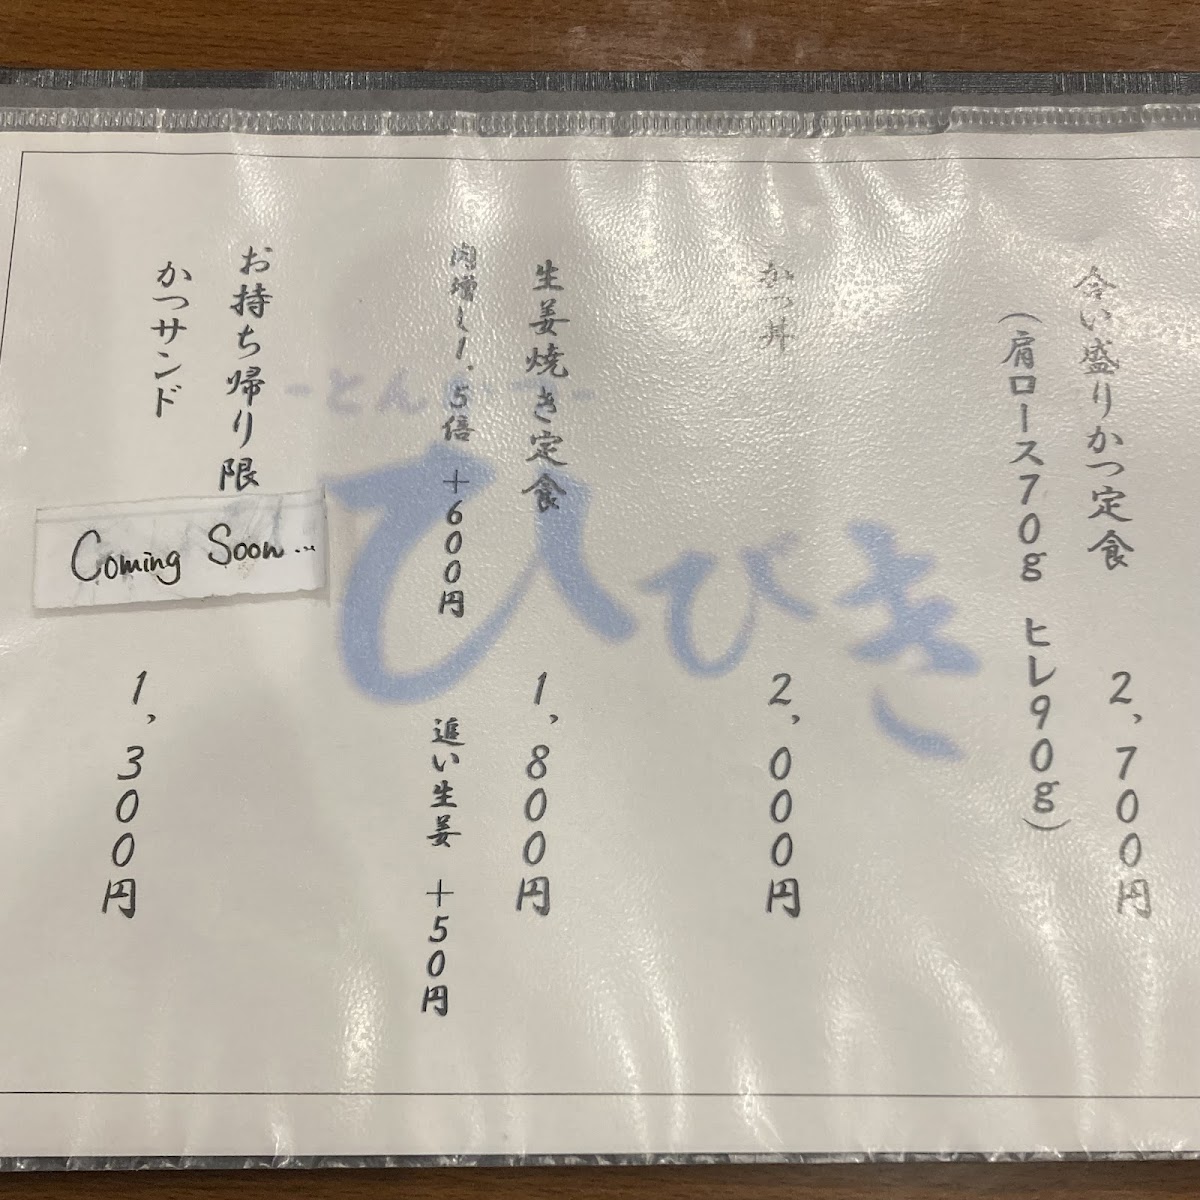 合い盛りかつ定食 2,700円
(肩ロース70g ヒレ90g)
かつ丼 2,000円
生姜焼き定食 1,800円
肉増し1.5倍 +600円 追い生姜 +50円
お持ち帰り限
かつサンド 1,300円
Coming Soon...
ーとんかつー
ひびき